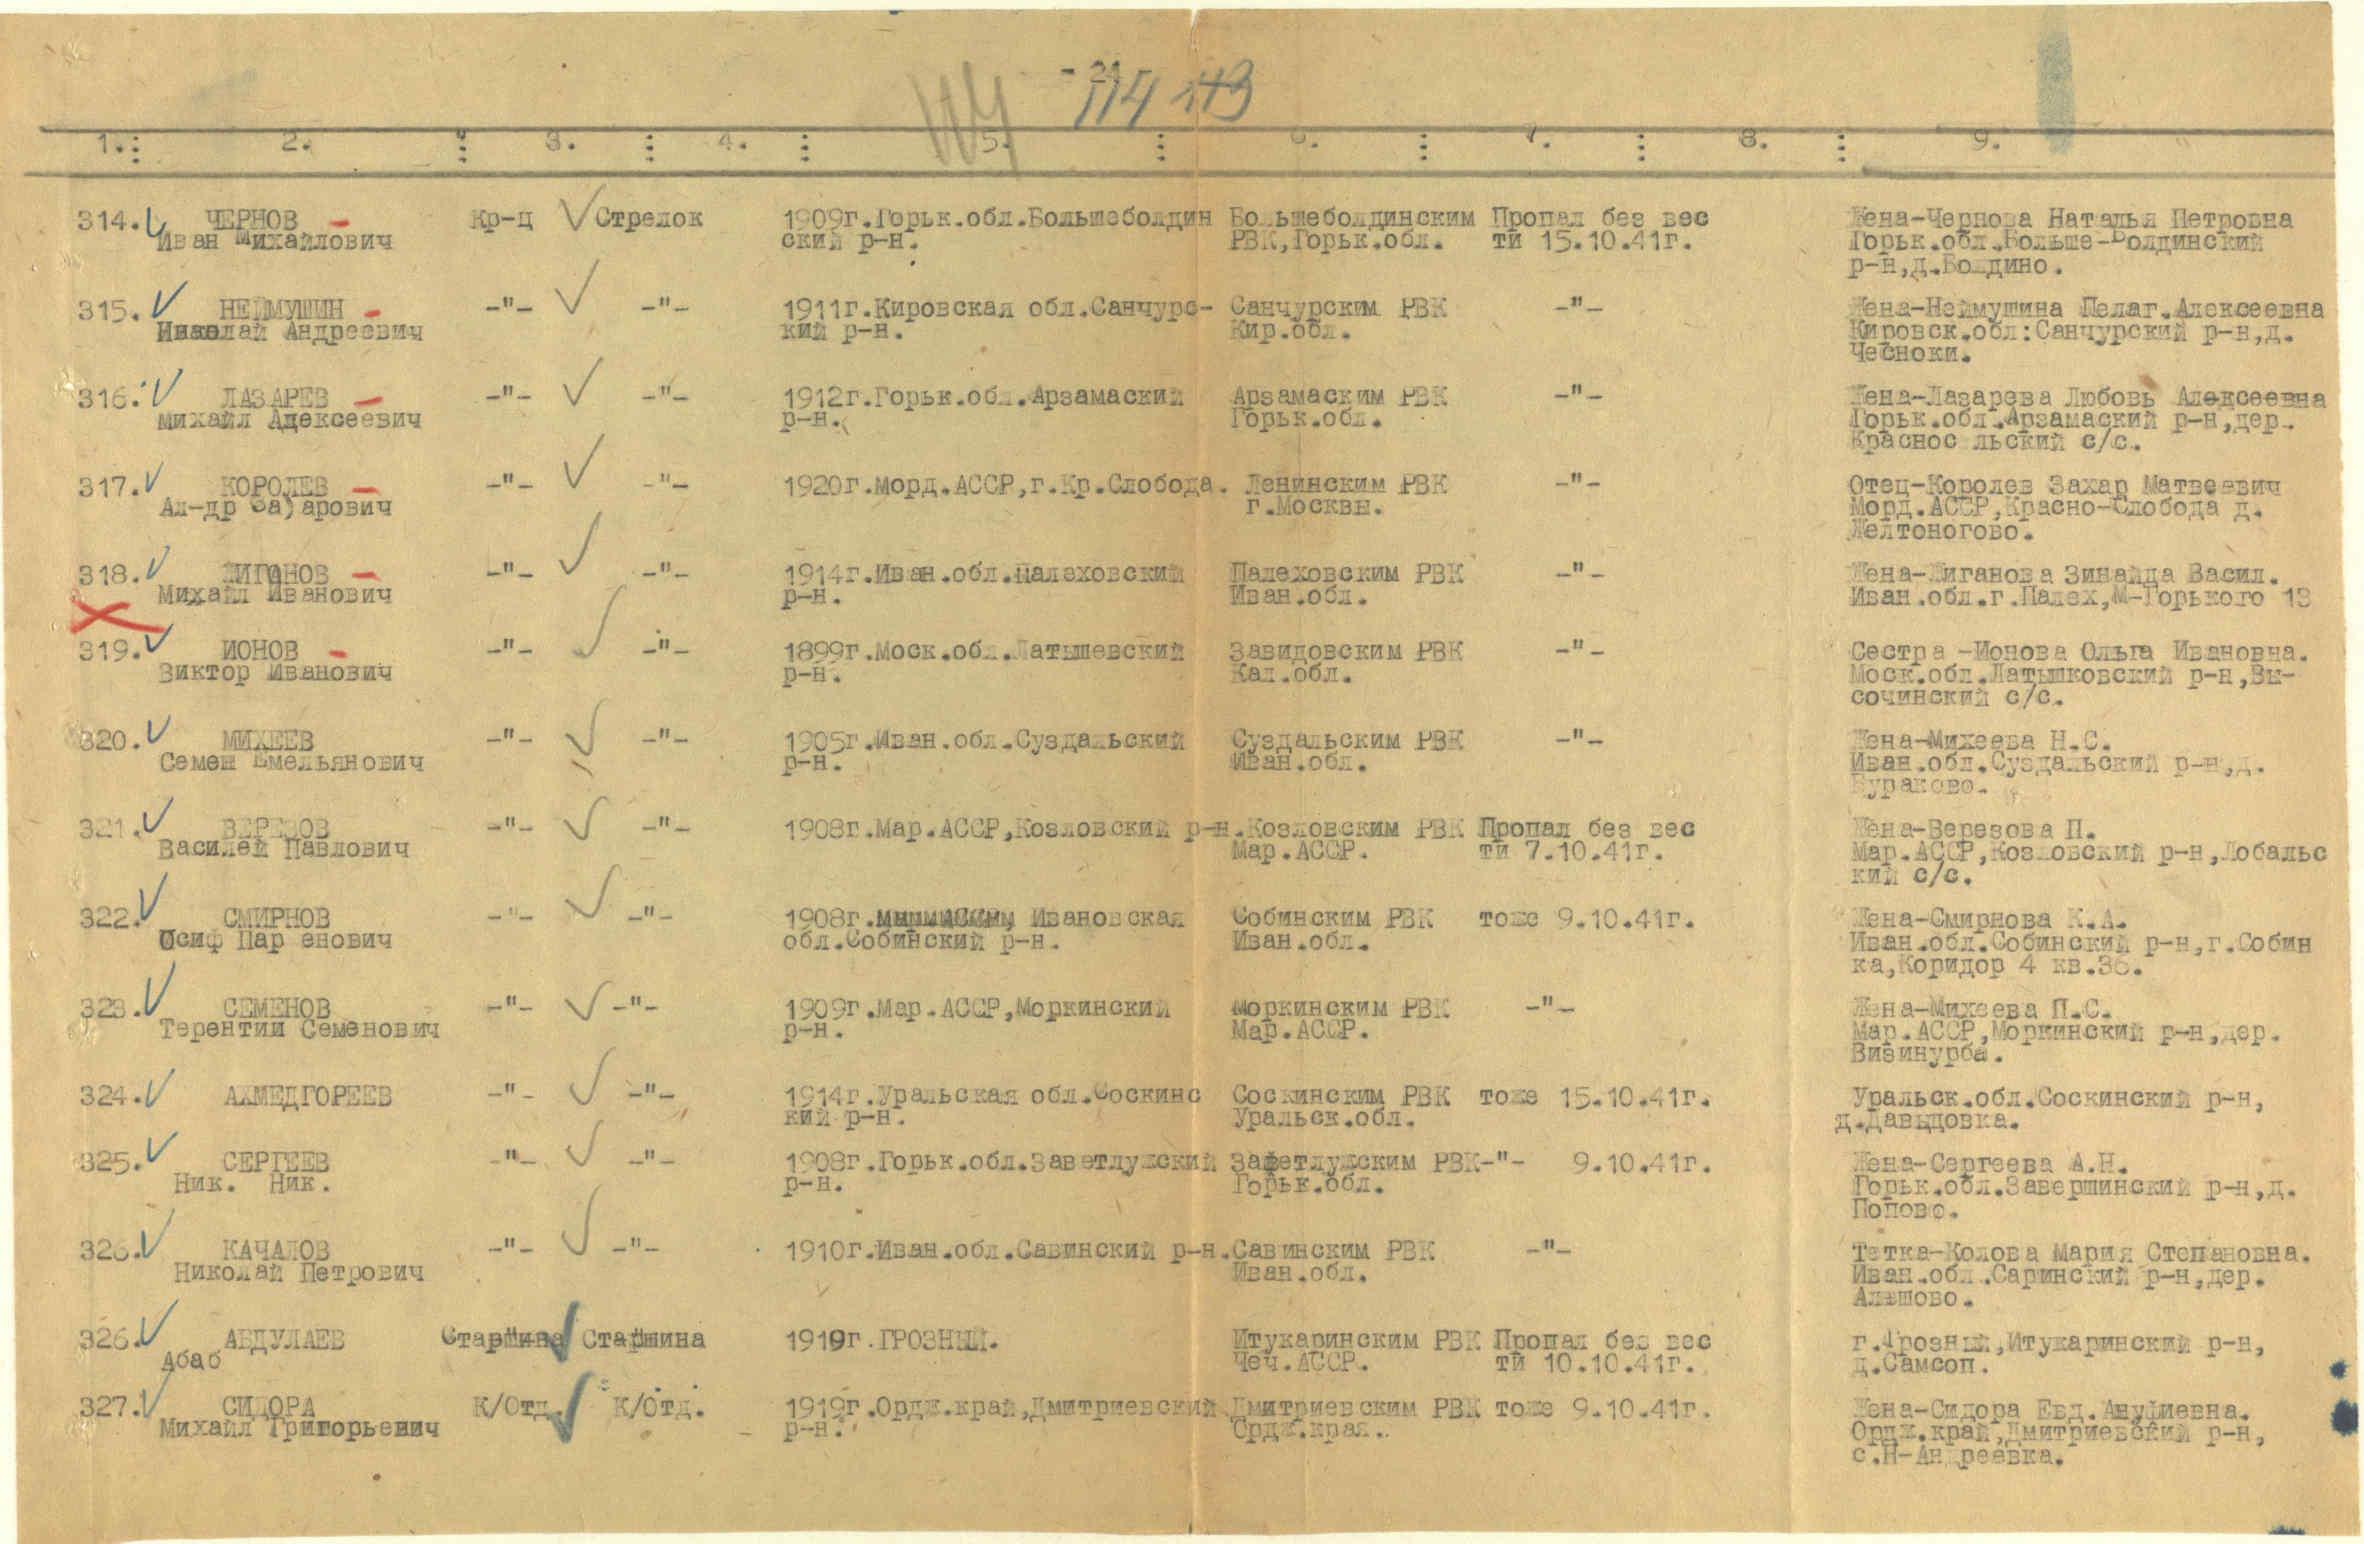 - 21
114 113
1. 2. 3. 4. 5. 6. 7. 8. 9.
314. ЧЕРНОВ - Кр-ц Стрелок 1909г.Горьк.обл.Большеболдин Большеболдинским Пропал без вес Жена-Чернова Наталья Петровна
Иван Михайлович ский р-н. РВК,Горьк.обл. ти 15.10.41г. Горьк.обл.Больше-Болдинский
р-н,д.Болдино.
315. НЕЙМУШИН - -"- -"- 1911г.Кировская обл.Санчурс- Санчурским РВК -"- Жена-Неймушина Пелаг.Алексеевна
Николай Андреевич кий р-н. Кир.обл. Кировск.обл:Санчурский р-н,д.
Чесноки.
316. ЛАЗАРЕВ - -"- -"- 1912г.Горьк.обл.Арзамаский Арзамаским РВК -"- Жена-Лазарева Любовь Алексеевна
Михайл Алексеевич р-н. Горьк.обл. Горьк.обл.Арзамаский р-н,дер.
Краснос льский с/с.
317. КОРОЛЕВ - -"- -"- 1920г.Морд.АССР,г.Кр.Слобода. Ленинским РВК -"- Отец-Королев Захар Матвеевич
Ал-др Захарович г.Москвы. Морд.АССР,Красно-Слобода д.
Желтоногово.
318. ЖИГАНОВ - -"- -"- 1914г.Иван.обл.Палеховский Палеховским РВК -"- Жена-Жиганова Зинайда Васил.
Михайл Иванович р-н. Иван.обл. Иван.обл.г.Палех,М-Горького 13
319. ИОНОВ - -"- -"- 1899г.Моск.обл.Латышевский Завидовским РВК -"- Сестра-Ионова Ольга Ивановна.
Виктор Иванович р-н. Кал.обл. Моск.обл.Латышковский р-н,Вы-
сочинский с/с.
320. МИХЕЕВ -"- -"- 1905г.Иван.обл.Суздальский Суздальским РВК -"- Жена-Михеева Н.С.
Семен Емельянович р-н. Иван.обл. Иван.обл.Суздальский р-н,д.
Бураково.
321. ВЕРЕЗОВ -"- -"- 1908г.Мар.АССР,Козловский р-н.Козловским РВК Пропал без вес Жена-Верезова П.
Василей Павлович Мар.АССР. ти 7.10.41г. Мар.АССР,Козловский р-н,Лобальс
кий с/с.
322. СМИРНОВ -"- -"- 1908г. Ивановская Собинским РВК тоже 9.10.41г. Жена-Смирнова К.А.
Осиф Пар енович обл.Собинский р-н. Иван.обл. Иван.обл.Собинский р-н,г.Собин
ка,Коридор 4 кв.36.
323. СЕМЕНОВ -"- -"- 1909г.Мар.АССР,Моркинский Моркинским РВК -"- Жена-Михеева П.С.
Терентий Семенович р-н. Мар.АССР. Мар.АССР,Моркинский р-н,дер.
Визинурба.
324. АХМЕДГОРЕЕВ -"- -"- 1914г.Уральская обл.Соскинс Соскинским РВК тоже 15.10.41г. Уральск.обл.Соскинский р-н,
кий р-н. Уральск.обл. д.Давыдовка.
325. СЕРГЕЕВ -"- -"- 1908г.Горьк.обл.Заветлужский Заветлужским РВК-"- 9.10.41г. Жена-Сергеева А.Н.
Ник. Ник. р-н. Горьк.обл. Горьк.обл.Завершинский р-н,д.
Попово.
326. КАЧАЛОВ -"- -"- 1910г.Иван.обл.Савинский р-н.Савинским РВК -"- Тетка-Колова Мария Степановна.
Николай Петрович Иван.обл. Иван.обл.Саринский р-н,дер.
Алешово.
326. АБДУЛАЕВ Старшина Старшина 1919г.ГРОЗНЫЙ. Итукаринским РВК Пропал без вес г.Грозный,Итукаринский р-н,
Абаб Чеч.АССР. ти 10.10.41г. д.Самсоп.
327. СИДОРА К/Отд. К/Отд. 1919г.Ордж.край,Дмитриевский Дмитриевским РВК тоже 9.10.41г. Жена-Сидора Евд.Ануфиевна.
Михайл Григорьевич р-н. Ордж.края. Ордж.край,Дмитриевский р-н,
с.Н-Андреевка.